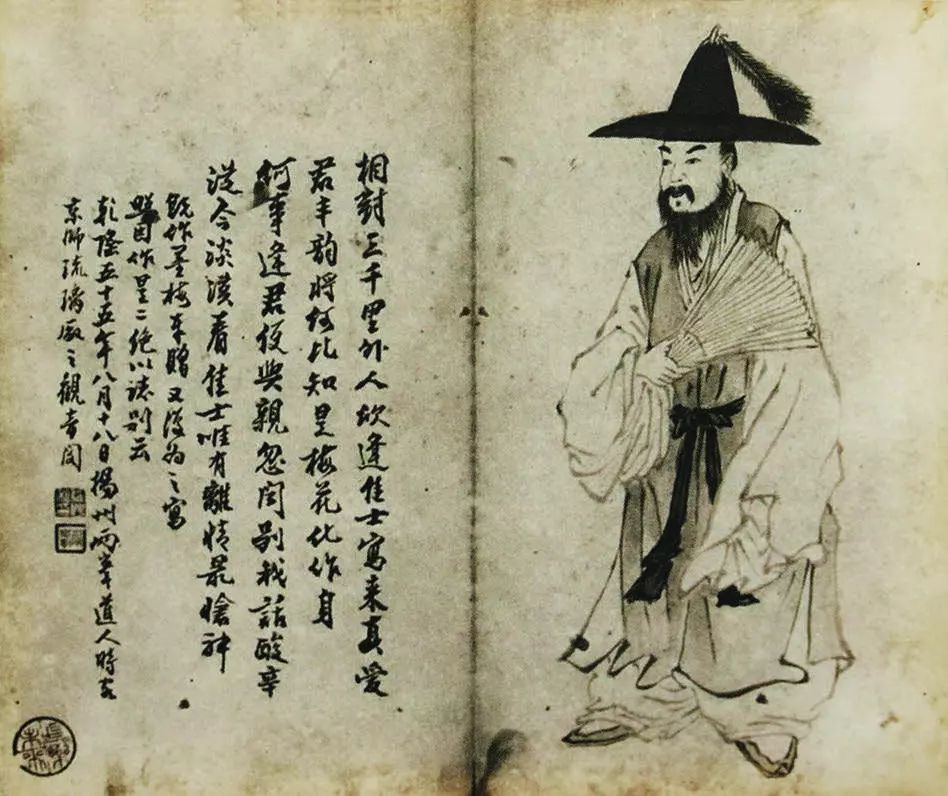 相對三千里外人欣逢佳士寫來真愛
君丰韻將何比知是梅花化作身
何事逢君便與親忽聞別我話酸辛
從今淡漠看佳士唯有離情最愴神
既作墨梅奉贈又復為之寫
照因作是二絕以誌別云
乾隆五十五年八月十八日揚州兩峯道人時客
京師琉璃廠之觀音閣